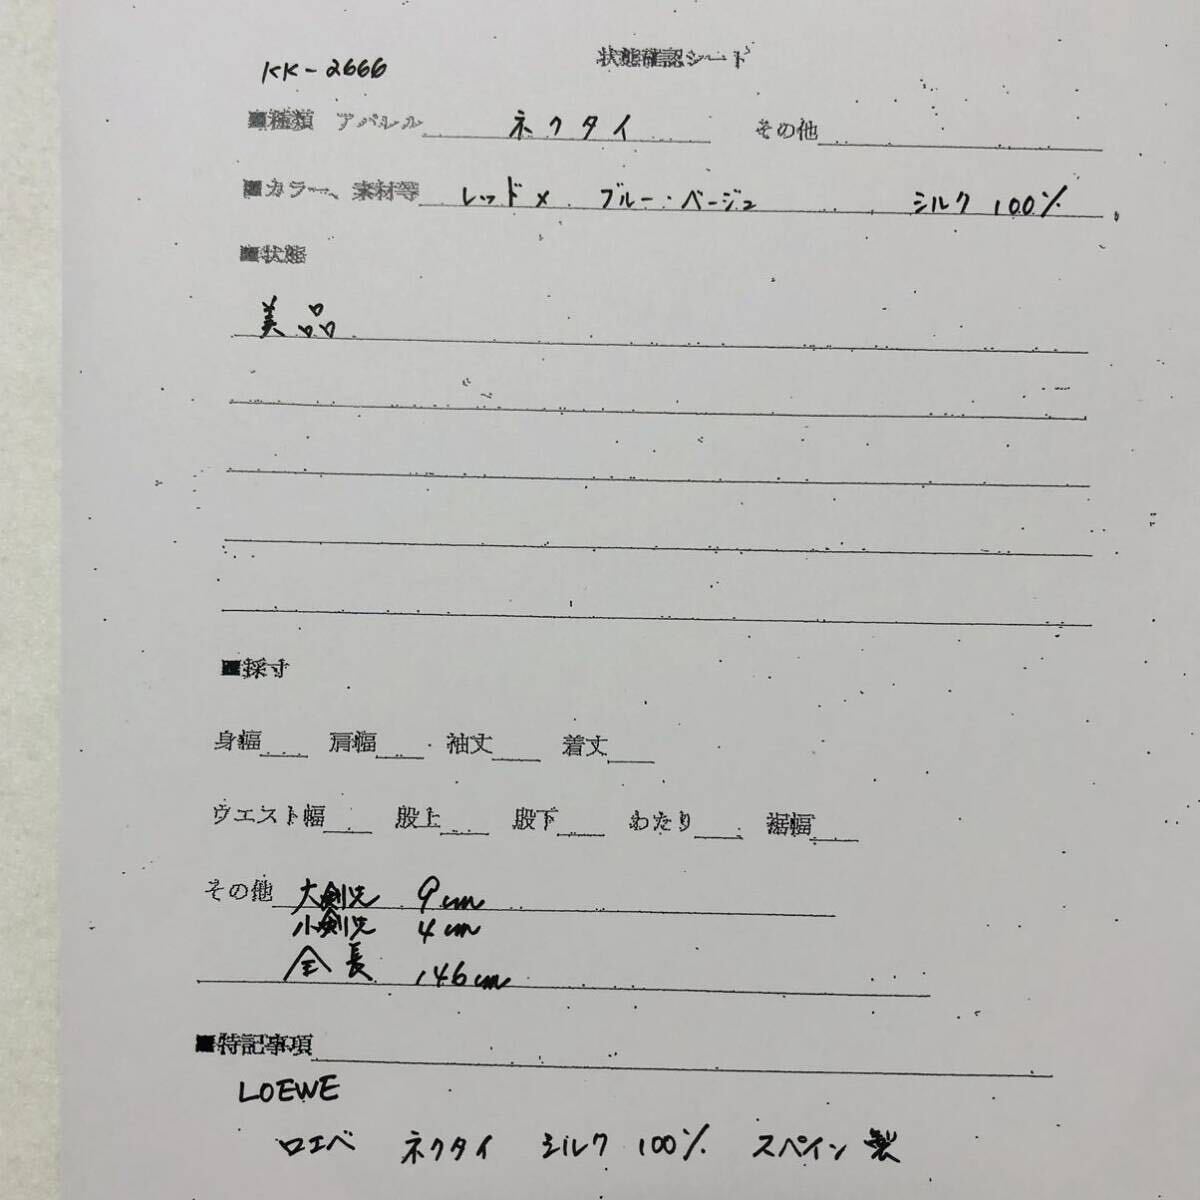 状態確認シート
KK-2666
■種類 アパレル ネクタイ その他
■カラー、素材等 レッド× ブルー・ベージュ シルク 100%
■状態
美品
■採寸
身幅 肩幅 袖丈 着丈
ウエスト幅 股上 股下 わたり 裾幅
その他 大剣先 9cm
小剣先 4cm
全長 146cm
■特記事項
LOEWE
ロエベ ネクタイ シルク 100% スペイン製